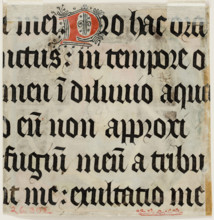 t meu Pro hac ora
nctus: in tempore o
men ī diluuio aqu
o eū non approxi
fugiū meū a tribu
nt me: exultatio me